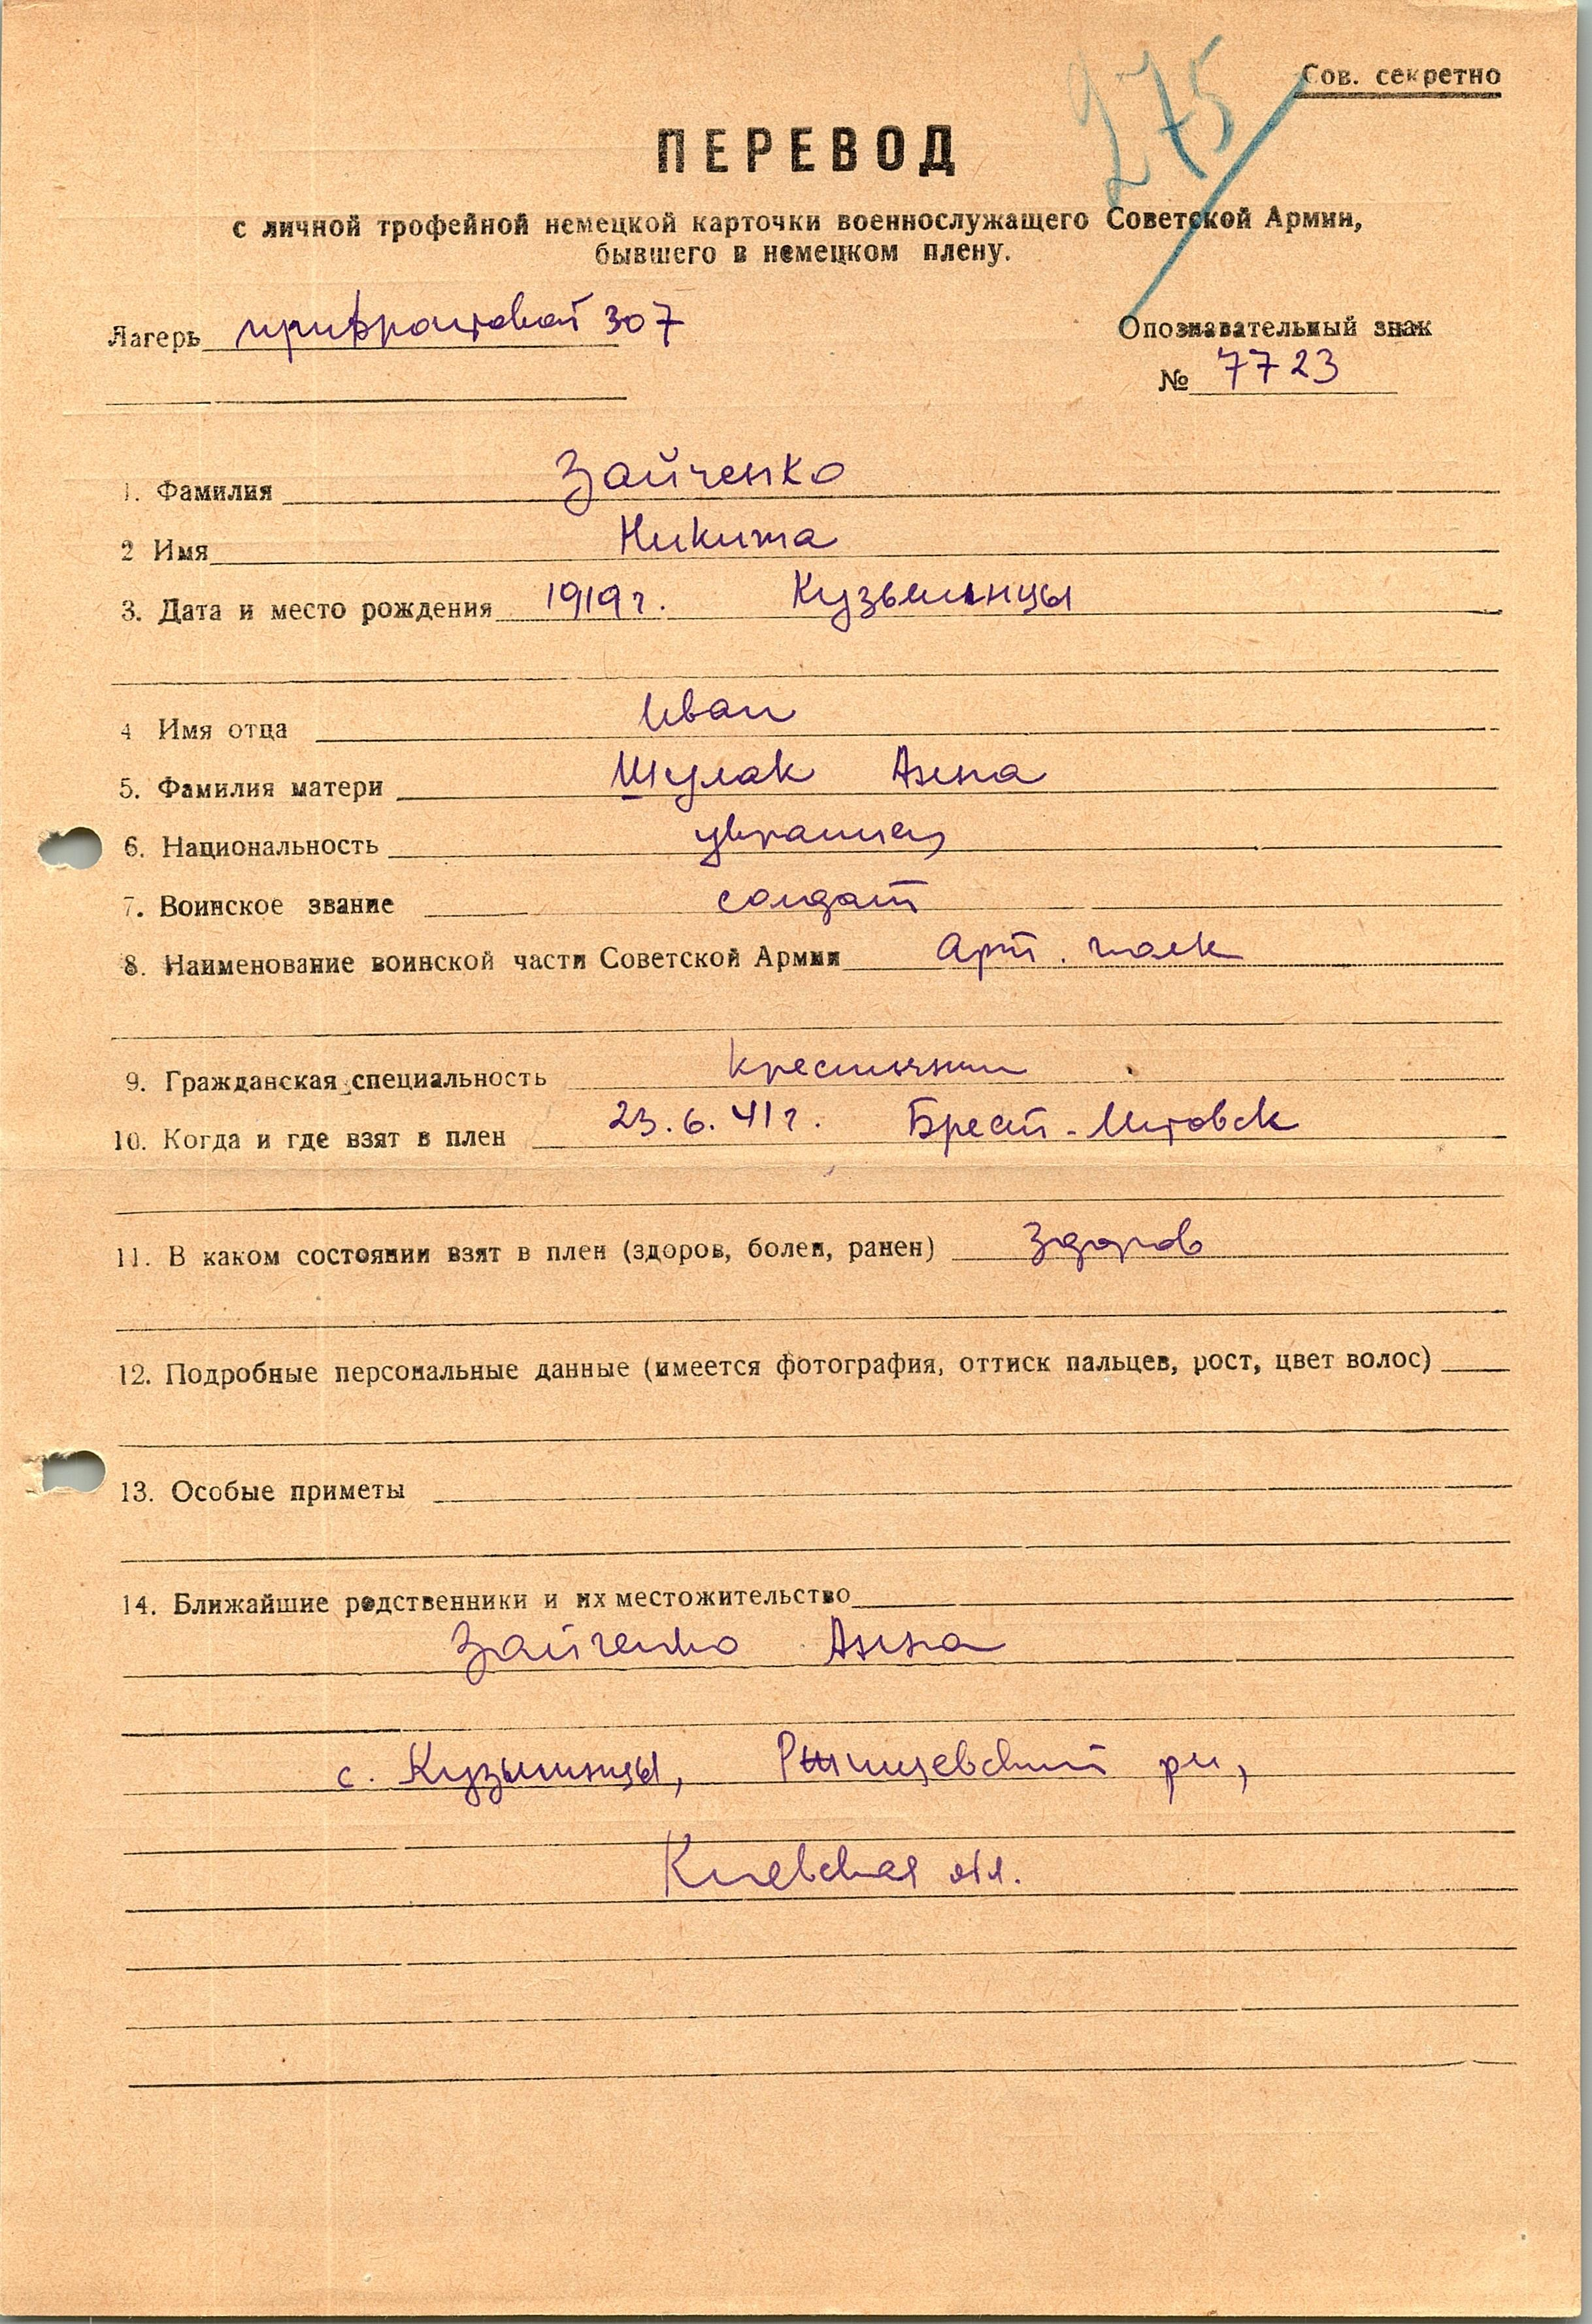 275
Сов. секретно
ПЕРЕВОД
с личной трофейной немецкой карточки военнослужащего Советской Армии,
бывшего в немецком плену.
Лагерь прифронтовой 307
Опознавательный знак
№ 7723
1. Фамилия Зайченко
2 Имя Никита
3. Дата и место рождения 1919 г. Кузьминцы
4 Имя отца Иван
5. Фамилия матери Шулак Анна
6. Национальность украинец
7. Воинское звание солдат
8. Наименование воинской части Советской Армии Арт. полк
9. Гражданская специальность крестьянин
10. Когда и где взят в плен 23.6.41 г. Брест-Литовск
11. В каком состоянии взят в плен (здоров, болен, ранен) здоров
12. Подробные персональные данные (имеется фотография, оттиск пальцев, рост, цвет волос)
13. Особые приметы
14. Ближайшие родственники и их местожительство
Зайченко Анна
с. Кузьминцы, рн,
Киевская обл.